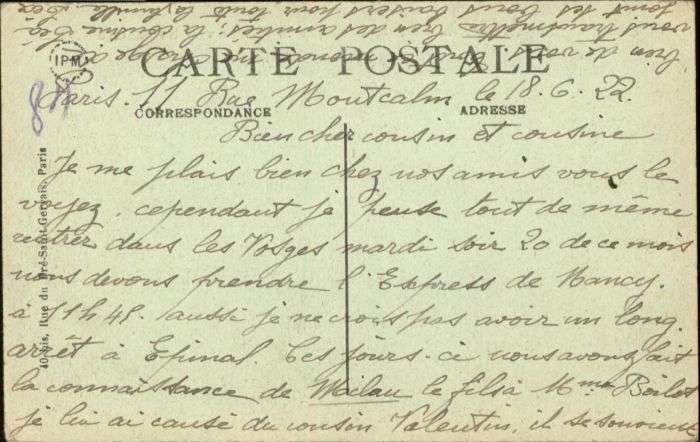 bien de vous. tout le monde me charge de
vous transmettre bien des amitiés; la cousine
joint ses bons baisers pour toute la famille
IPM
CARTE POSTALE
Paris. 11 Rue Montcalm le 18.6.22
CORRESPONDANCE
ADRESSE
Bien cher cousin et cousine
Je me plais bien chez nos amis vous le
voyez. cependant je pense tout de même
rentrer dans les Vosges mardi soir 20 de ce mois
nous devons prendre l'Express de Nancy.
à 11h48. aussi je ne crois pas avoir un long
arrêt à Epinal. Ces jours-ci nous avons fait
la connaissance de le fils à Mme Boilot
je lui ai causé du cousin Valentin, il se souvient
40bis, Rue du Pré-Saint-Gervais, Paris